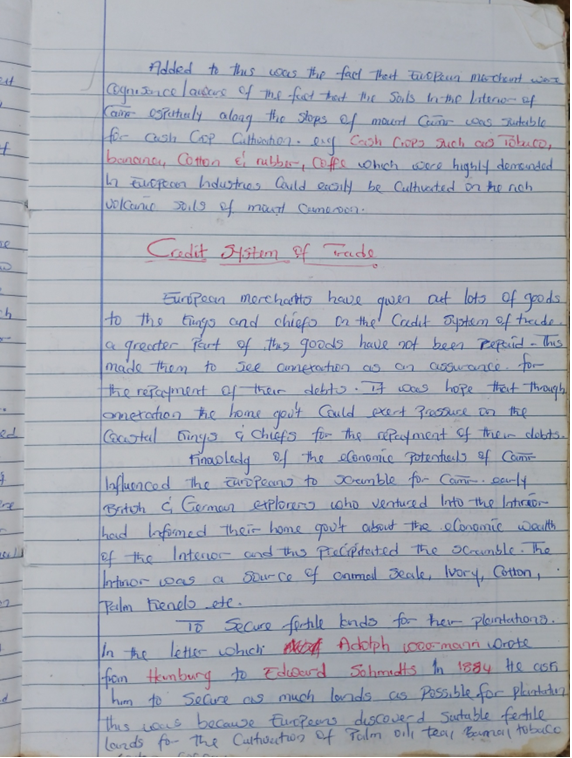 Added to this was the fact that European merchant were
Cognisance of the fact that the Soils In the Interior of
Cam especially along the slops of mount Cam was suitable
for Cash Crop Cultivation. e.g Cash Crops such as Tobacco,
banana, Cotton & rubber, Coffe which were highly demanded
In European Industries Could easily be Cultivated on the rich
Volcanic soils of mount Cameroon.
Credit System of Trade
European merchants have given out lots of goods
to the kings and chiefs on the Credit System of trade.
a greater Part of this goods have not been Repaid. This
made them to see annexation as an assurance for
the repayment of their debts. It was hope that through
annexation the home gov't Could exert Pressure on the
Coastal kings & Chiefs for the repayment of their debts.
Knowledg of the economic Potentials of Cam
Influenced the Europeans to scramble for Cam. early
British & German explorers who ventured Into the Interior
had Informed their home gov't about the economic wealth
of the Interior and this Precipitated the scramble. The
Interior was a source of animal Ivory, Cotton,
Palm Kenels etc.
To Secure fertile lands for their plantations.
In the letter which Adolph woermann wrote
from Hamburg to Edward Schmidts In 1884 He ask
him to Secure as much lands as Possible for plantation
this was because Europeans discoverd Suitable fertile
lands for the Cultivation of Palm oil, tea, Banana, tobacco